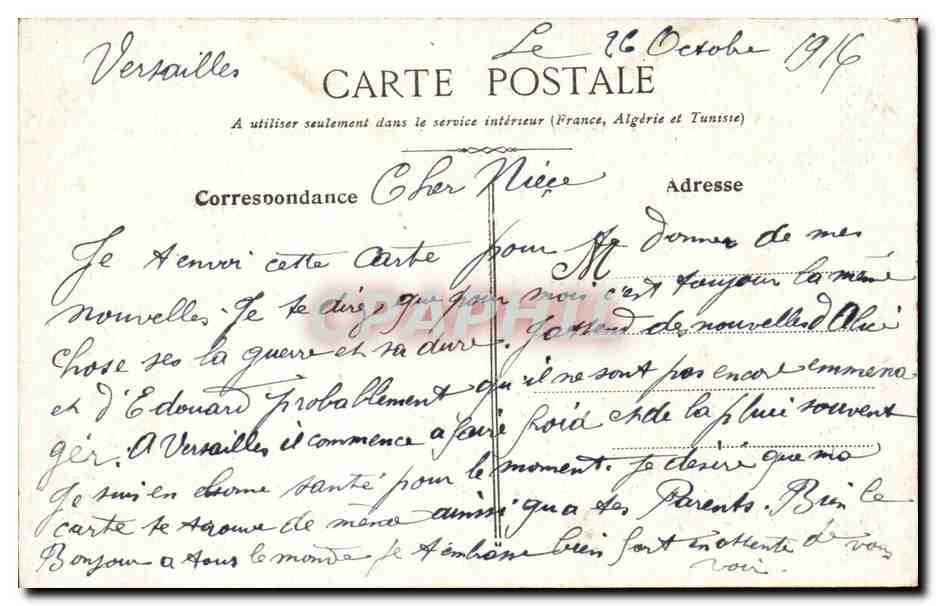 Versailles Le 26 Octobre 1916
CARTE POSTALE
A utiliser seulement dans le service intérieur (France, Algérie et Tunisie)
Correspondance Cher Nièce Adresse
Je t envoi cette Carte pour te donner de mes
M
nouvelles. Je te dirge que pour mois c'est toujour la même
CPAPHIL
chose ses la guerre et sa dure. J attend des nouvelles d Alice
et d'Edouard probablement qu'il ne sont pas encore emmena
gér. A Versailles il commence a fairé froid et de la pluie souvent
Je suis en bonne santé pour le moment. Je désire que ma
carte te trouve de même ainsi qu a tes Parents. Bien le
Bonjour a tous le monde Je t'embrasse bien fort en attente de vous
voir.